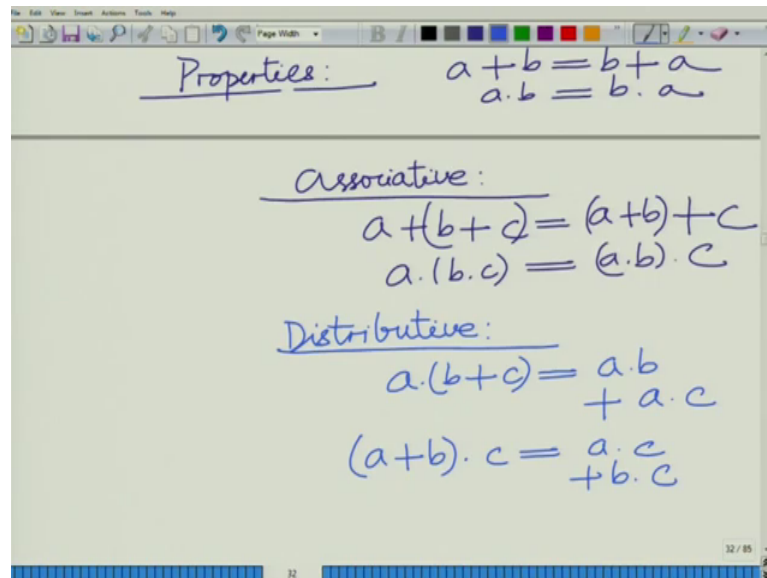 File Edit View Insert Actions Tools Help
Page Width
B I
Properties: a+b=b+a
a.b=b.a
Associative:
a+(b+c)=(a+b)+c
a.(b.c)=(a.b).c
Distributive:
a.(b+c)=a.b
+a.c
(a+b).c=a.c
+b.c
32/85
32